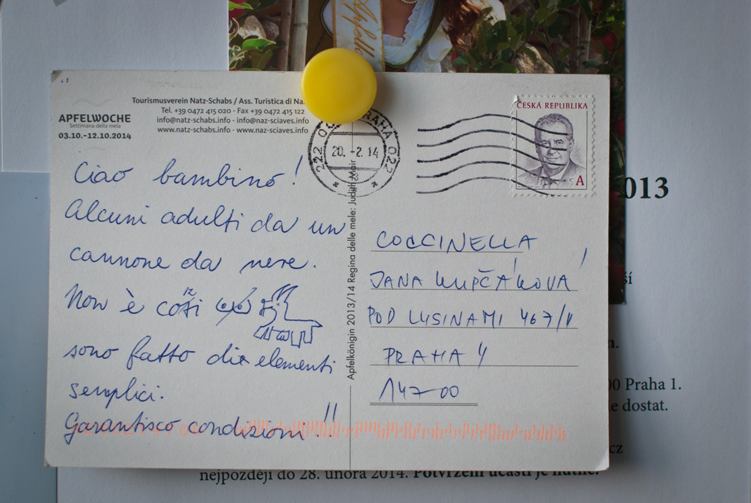 Tourismusverein Natz-Schabs / Ass. Turistica di
Tel. +39 0472 415 020 - Fax +39 0472 415 122
info@natz-schabs.info - info@naz-sciaves.info
www.natz-schabs.info - www.naz-sciaves.info
APFELWOCHE
Settimana della mela
03.10.-12.10.2014
PRAHA 022
20. -2. 14
ČESKÁ REPUBLIKA
A
Ciao bambino!
Alcuni adulti da un
cannone da neve.
Non è così
sono fatto di elementi
semplici.
Garantisco condizioni!!
Apfelkönigin 2013/14 Regina delle mele:
COCCINELLA
JANA
POD LUSINAMI 467/
PRAHA 4
147 00
013
ší
00 Praha 1.
e dostat.
cz
nejpozději do 28. února 2014. Potvrzení účasti je nutné.